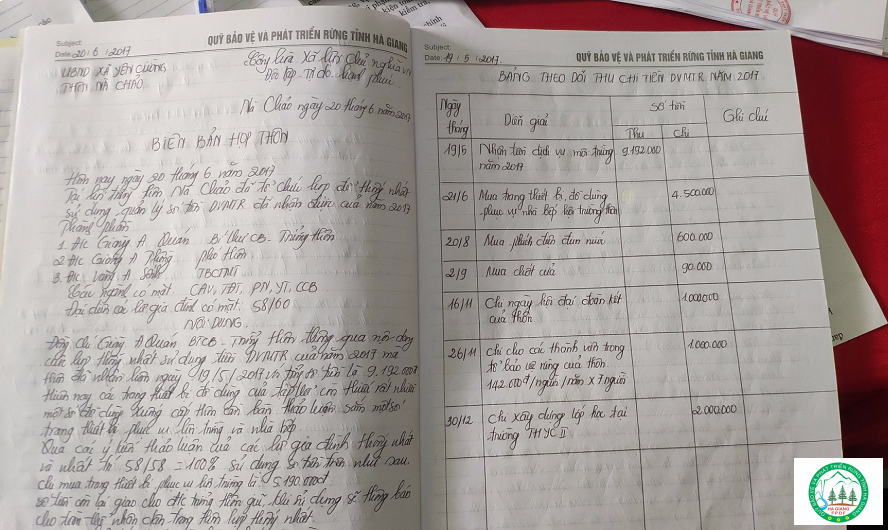 Subject:
Date: 20 / 6 / 2017
QUỸ BẢO VỆ VÀ PHÁT TRIỂN RỪNG TỈNH HÀ GIANG
UBND XÃ YÊN CƯỜNG
THÔN NÀ CHẢO
Cộng hòa Xã hội Chủ nghĩa VN
Độc lập, Tự do, hạnh phúc
Nà Chảo ngày 20 tháng 6 năm 2017
BIÊN BẢN HỌP THÔN
Hôm nay ngày 20 tháng 6 năm 2017
Tại hội trường thôn Nà Chảo đã tổ chức họp để thống nhất
sử dụng, quản lý số tiền DVMTR đã nhận được của năm 2017
Thành phần
1. Đ/c Giàng A Quán Bí thư CB - Trưởng thôn
2. Đ/c Giàng A Phong phó thôn
3. Đ/c Vàng A TBCTMT
Các ngành có mặt CAV, TĐT, PN, YT, CCB
Đại diện các hộ gia đình có mặt: 58/60
NỘI DUNG.
Đồng chí Giàng A Quán BTCB - Trưởng thôn thông qua nội dung
cuộc họp thống nhất sử dụng tiền DVMTR của năm 2017 mà
thôn đã nhận hôm ngày 19/5/2017 với tổng số tiền là 9.192.000đ
thôn nay các trang thiết bị đồ dùng của tập thể còn thiếu rất nhiều
một số đồ dùng xuống cấp thôn cần bàn thảo luận sắm một số
trang thiết bị phục vụ hội trường và nhà bếp.
Qua các ý kiến thảo luận của các hộ gia đình thống nhất
và nhất trí 58/58 = 100% sử dụng số tiền trên như sau.
Chi mua trang thiết bị phục vụ hội trường là: 5.190.000đ
số tiền còn lại giao cho đ/c trưởng thôn giữ, khi sử dụng sẽ thông báo
cho toàn thể nhân dân trong thôn họp thống nhất.
Subject:
Date: 19 / 5 / 2017
QUỸ BẢO VỆ VÀ PHÁT TRIỂN RỪNG TỈNH HÀ GIANG
BẢNG THEO DÕI THU CHI TIỀN DVMTR NĂM 2017
Ngày tháng Diễn giải Số tiền Ghi chú
Thu Chi
19/5 Nhận tiền dịch vụ môi trường 9.192.000
năm 2017
21/6 Mua trang thiết bị, đồ dùng 4.500.000
phục vụ nhà bếp hội trường thôn
20/8 Mua phích điện đun nước 600.000
2/9 Mua chốt cửa 90.000
16/11 Chi ngày hội đại đoàn kết 1.000.000
của thôn
26/11 Chi cho các thành viên trong 1.000.000
tổ bảo vệ rừng của thôn
142.000đ/người/năm x 7 người
30/12 Chi xây dựng lớp học tại 2.000.000
trường THYC II
HÀ GIANG
FPDF